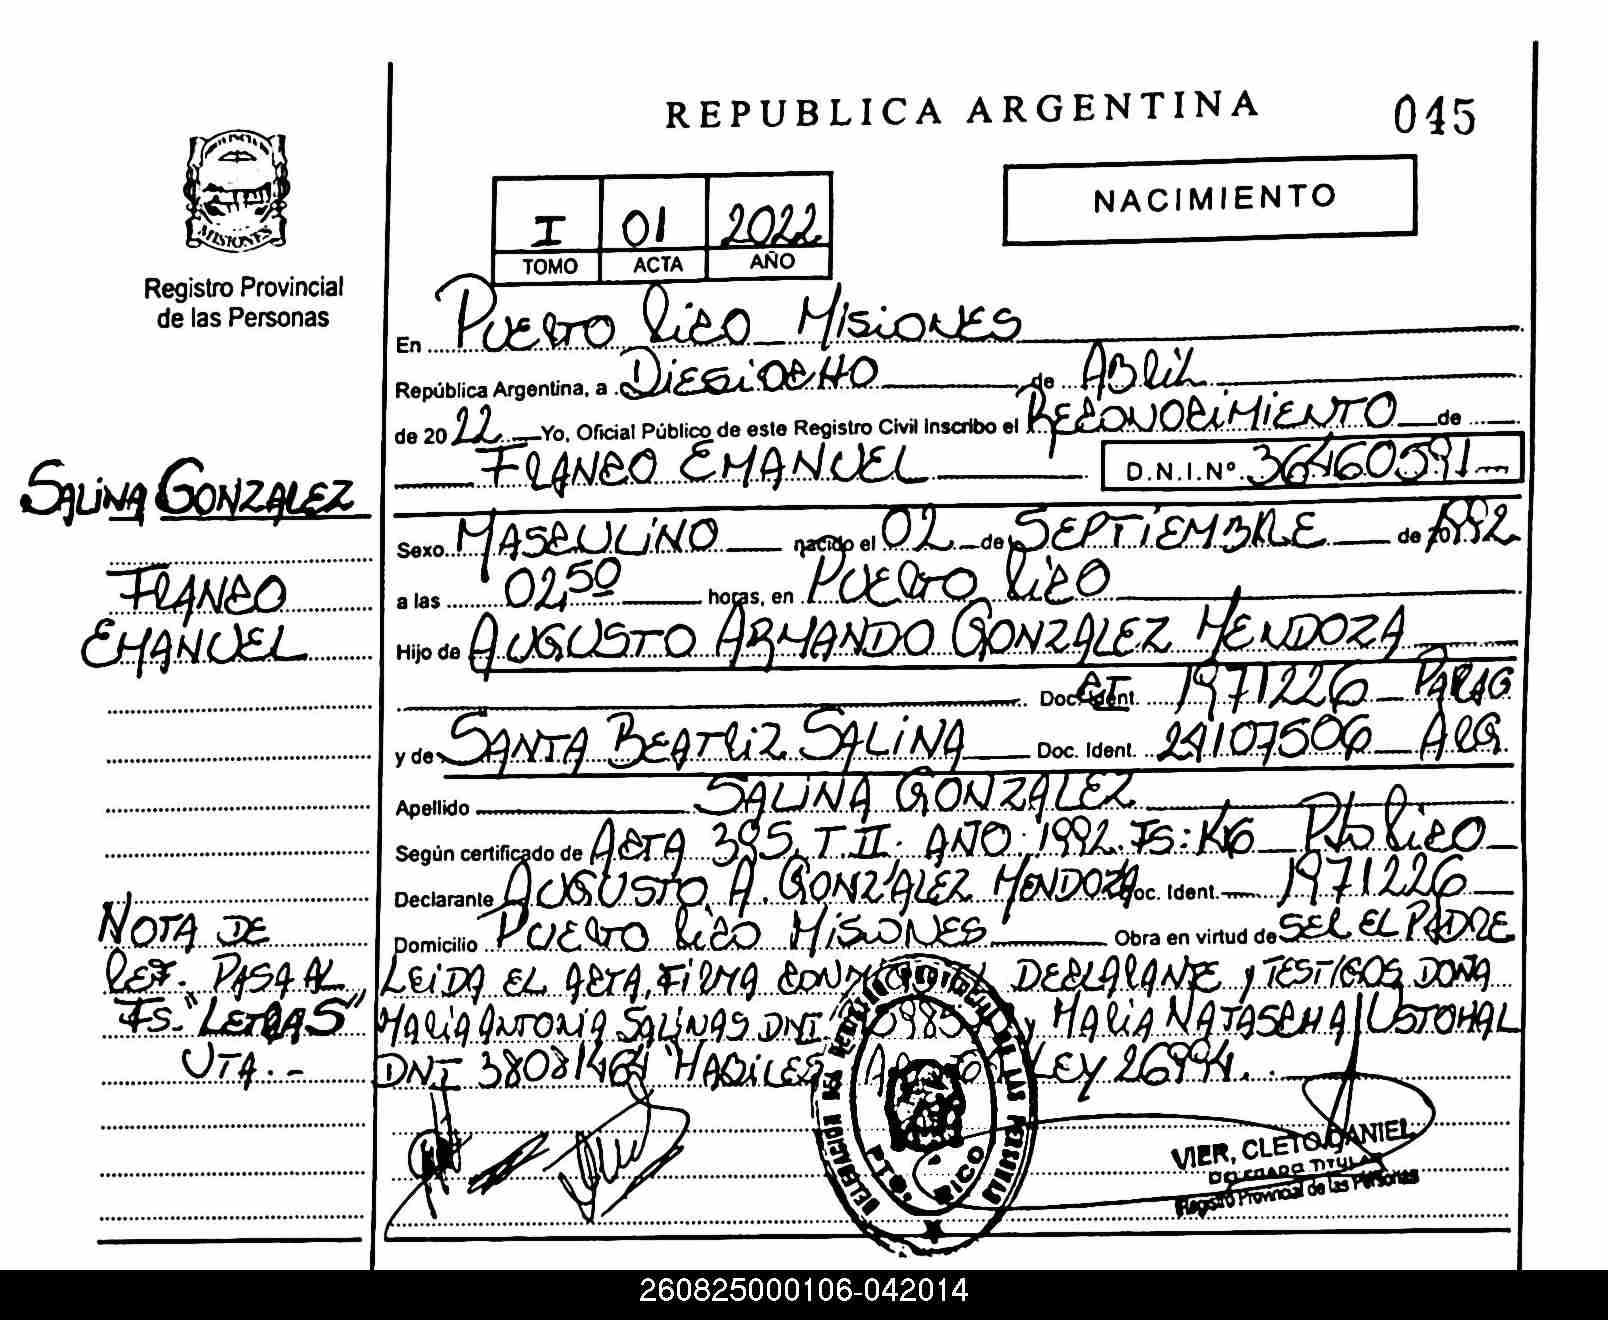 REPUBLICA ARGENTINA
045
NACIMIENTO
I 01 2022
TOMO ACTA AÑO
MISIONES
Registro Provincial
de las Personas
En PUERTO RICO MISIONES
República Argentina, a DIESIOCHO de ABRIL
de 2022 Yo, Oficial Público de este Registro Civil Inscribo el RECONOCIMIENTO de
FRANCO EMANUEL D.N.I.Nº 36460591
SALINA GONZALEZ
FRANCO
EMANUEL
Sexo MASCULINO nacido el 02 de SEPTIEMBRE de 1992
a las 02,50 horas, en PUERTO RICO
Hijo de AUGUSTO ARMANDO GONZALEZ MENDOZA
Doc. Ident. CI 1971226 PARAG
y de SANTA BEATRIZ SALINA Doc. Ident. 24107506 ARG.
Apellido SALINA GONZALEZ
Según certificado de ACTA 395. T II. AÑO: 1992. Fs: Pto RICO
Declarante AUGUSTO A. GONZALEZ MENDOZA Doc. Ident. 1971226
Domicilio PUERTO RICO MISIONES Obra en virtud de SER EL PADRE
NOTA DE
REF. PASA AL
Fs. "LETRAS"
VTA.-
LEIDA EL ACTA, FIRMA CONMIGO EL DECLARANTE y TESTIGOS DOÑA
MARIA ANTONIA SALINAS DNI y MARIA NATASCHA USTOHAL
DNI 38081464 HABILES LEY 26994.
DELEGACION DEL REGISTRO PROVINCIAL DE LAS PERSONAS
PTO. RICO
VIER, CLETO DANIEL
DELEGADO TITULAR
Registro Provincial de las Personas
260825000106-042014